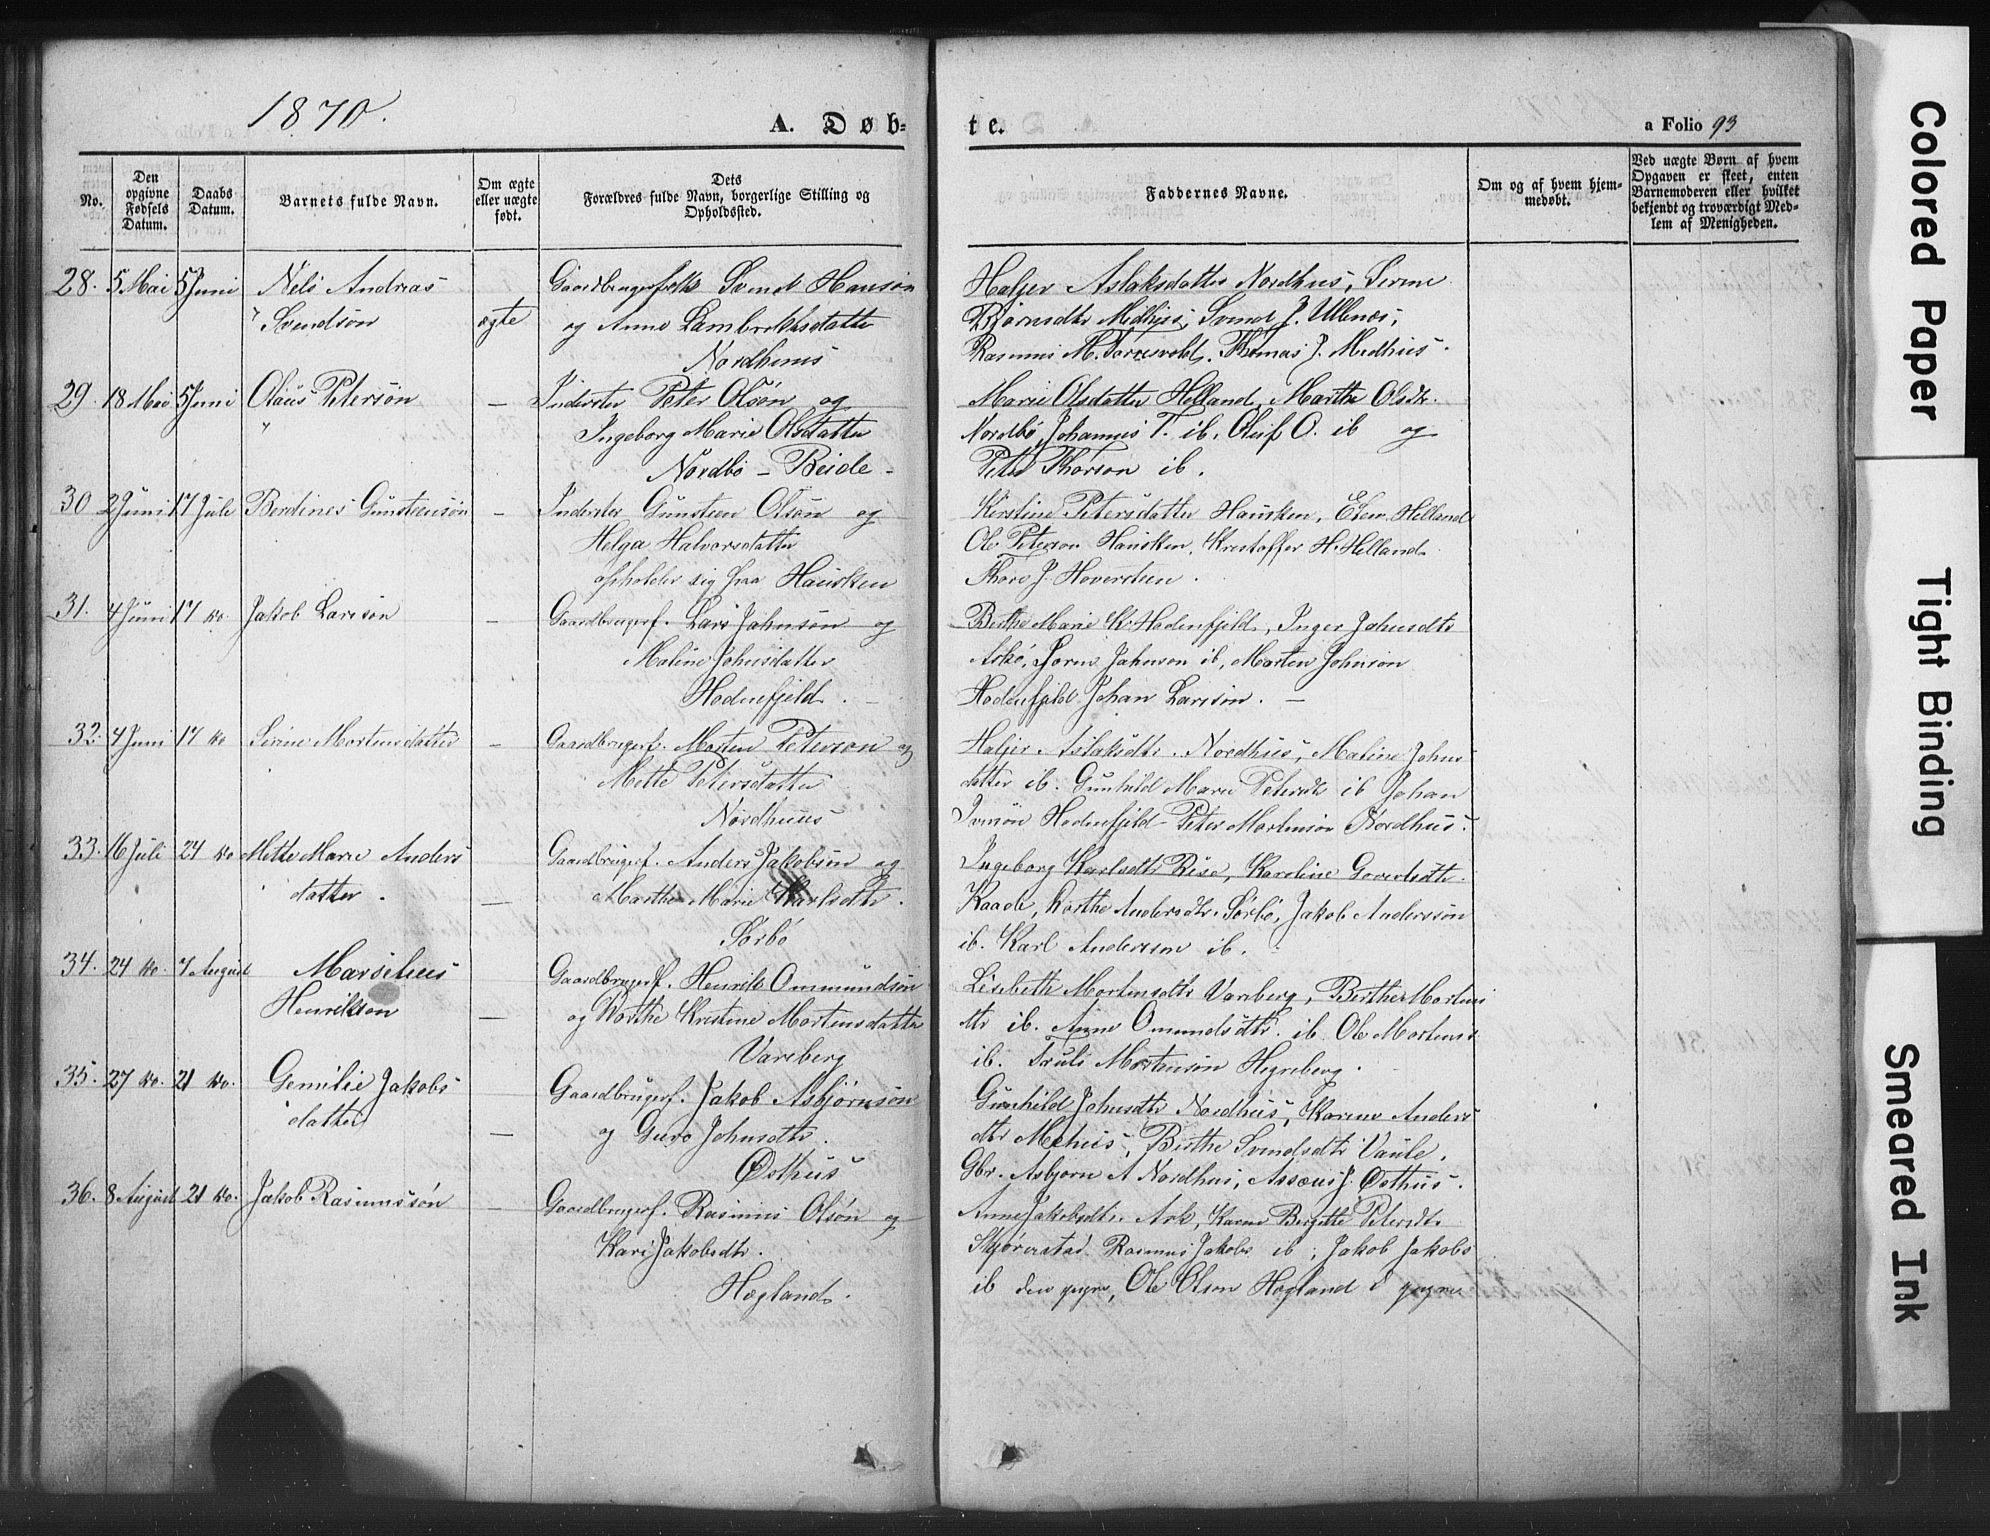 1870.
A. Døb-
te.
a Folio 93
No.
Den
opgivne
Fødsels
Datum.
Daabs
Datum.
Barnets fulde Navn.
Om ægte
eller uægte
født.
Dets
Forældres fulde Navn, borgerlige Stilling og
Opholdssted.
Faddernes Navne.
Om og af hvem hjem-
medøbt.
Ved uægte Børn af hvem
Opgaven er skeet, enten
Barnemoderen eller hvilket
bekjendt og troværdigt Med-
lem af Menigheden.
28. 5 Mai 5 Juni Nels Andreas
Svendsøn
ægte
Gaardbrugerfolk Svend Hansøn
og Anne Lambrektsdatter
Nordhuus
Haljer Aslaksdatter Nordhus, Serine
Bjørnsdtr Midhus, Svend J. Ullenæs,
Rasmus M. Thomas J. Medhus.
29. 18 Mai 5 Juni Olaus Petersøn -
Inderster Peter Olsøn og
Ingeborg Marie Olsdatter
Nordbø - Beide -
Marie Olsdatter Helland, Marthe Olsdtr.
Nordbø, Johannes T. ib, Oluf O. ib og
Peter Thorson ib.
30 2 Juni 17 Juli Berdines Gunsteensøn -
Inderster Gunsteen Olsøn og
Helga Halvorsdatter
opholder sig paa Hausken
Kirstine Petersdatter Hausken, Elen Helland
Ole Peterson Hausken, Kristoffer H. Helland
Thore J. Hoversteen.
31. 4 Juni 17 do. Jakob Larsøn -
Gaardbrugerf. Lars Johnsøn og
Maline Johnsdatter
Hodnefjeld. -
Berthe Marie K. Hodnefjeld, Inger Johnsdtr
Askø, Sorns Johnson ib, Morten Johnson
Hodnefjeld Johan Larson. -
32. 4 Juni 17 do Serine Mortensdatter -
Gaardbrugerf. Morten Peterson og
Mette Petersdatter
Nordhuus
Haljer Aslaksdtr. Nordhus, Maline Johns
datter ib. Gunhild Marie Petersdtr ib Johan
Iversøn Hodnefjeld Peter Mortensøn Nordhus.
33. 16 Juli 24 do Mette Marie Anders
datter. -
Gaardbrugerf. Anders Jakobsøn og
Marthe Marie Karlsdtr.
Sørbø
Ingeborg Karlsdtr Risa, Karoline Govertsdtr.
Kaada, Dorthe Andersdtr. Sørbø, Jakob Andersson
ib. Karl Anderson ib.
34. 24 do. 7 August Marselius
Henrikson -
Gaardbrugerf. Henrik Ommundsøn
og Dorthe Kristine Mortensdatter
Vareberg
Lisebeth Mortensdtr Vareberg, Berthe Mortens
dtr ib. Anne Omundsdtr. ib Ole Mortens
ib. Truls Mortenson Hegreberg.
35. 27 do. 21 do. Gemilie Jakobs
datter -
Gaardbrugerf. Jakob Asbjørnsøn
og Guro Johnsdtr.
Østhus
Gunhild Johnsdtr Nordhus, Karine Anders
dtr Mehus, Birthe Svendsdtr Vaule,
Gbr. Asbjørn A Nordhus, Assæus J. Østhus.
36. 8 August 21 do. Jakob Rasmussøn -
Gaardbrugerf. Rasmus Olsøn og
Kari Jakobsdtr.
Hegland.
Anne Jakobsdtr. Ask, Karen Bergitte Petersdtr
Skjørestad. Rasmus Jakobs ib; Jakob Jakobs
ib den yngre, Ole Olson Hegland d yngre
Colored Paper
Tight Binding
Smeared Ink